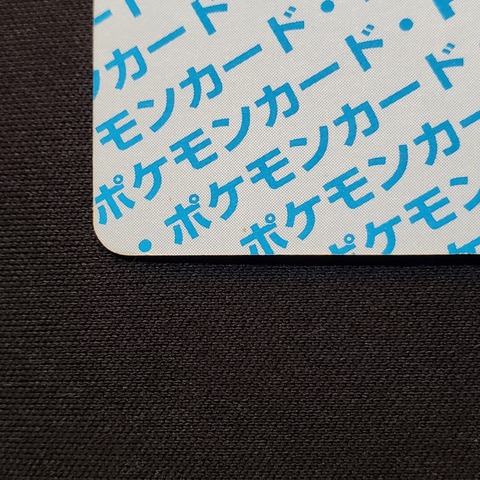 ンカード・ポ
モンカード・
ポケモンカード・
・ポケモンカー
ポケモン
ポケ